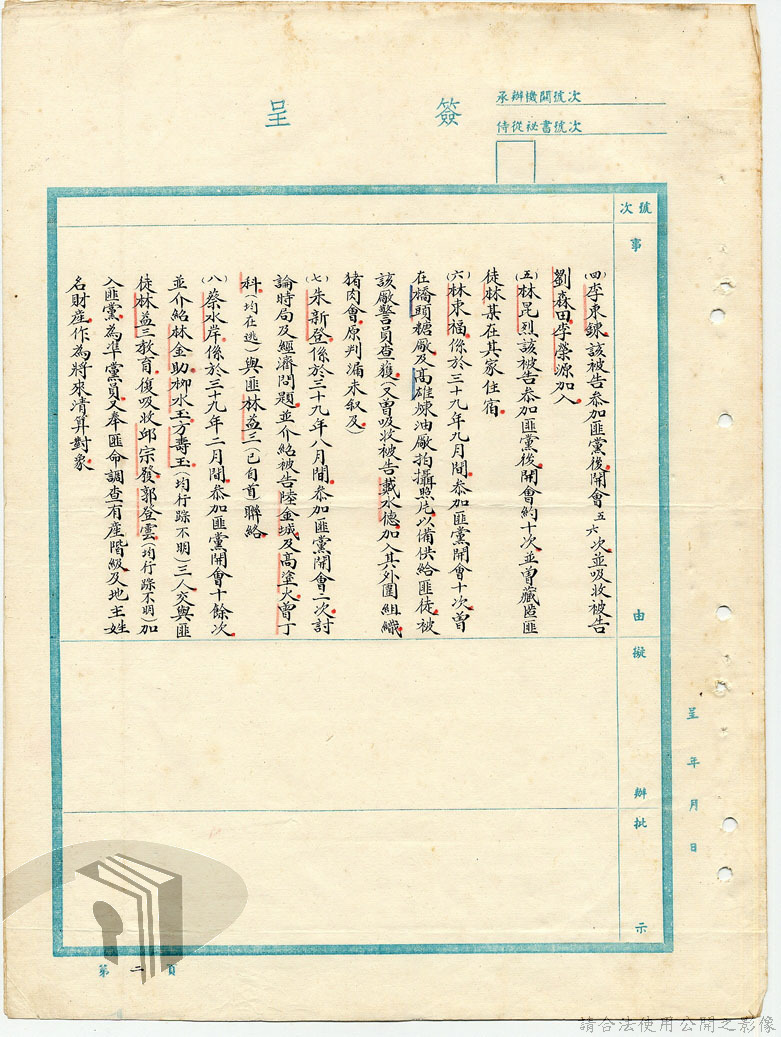 簽呈
承辦機關號次
侍從祕書號次
號次
事由
擬辦
批示
㈣李東錸該被告參加匪黨後開會五六次並吸收被告
劉森田李榮源加入
㈤林昆烈該被告參加匪黨後開會約十次並曾藏匿匪
徒林某在其家住宿
㈥林東福係於三十九年九月間參加匪黨開會十次曾
在橋頭糖廠及高雄煉油廠拍攝照片以備供給匪徒被
該廠警員查獲(又曾吸收被告戴水德加入其外圍組織
猪肉會原判漏未叙及)
㈦朱新登係於三十九年八月間參加匪黨開會一次討
論時局及經濟問題並介紹被告陸金城及高塗火曾丁
科(均在逃)與匪林益三(已自首)聯絡
㈧蔡水岸係於三十九年二月間參加匪黨開會十餘次
並介紹林金助柳水玉方壽玉(均行踪不明)三人交與匪
徒林益三教育復吸收邱宗發郭登雲(均行踪不明)加
入匪黨為準黨員又奉匪命調查有產階級及地主姓
名財產作為將來清算對象
呈 年 月 日
第二頁
請合法使用公開之影像